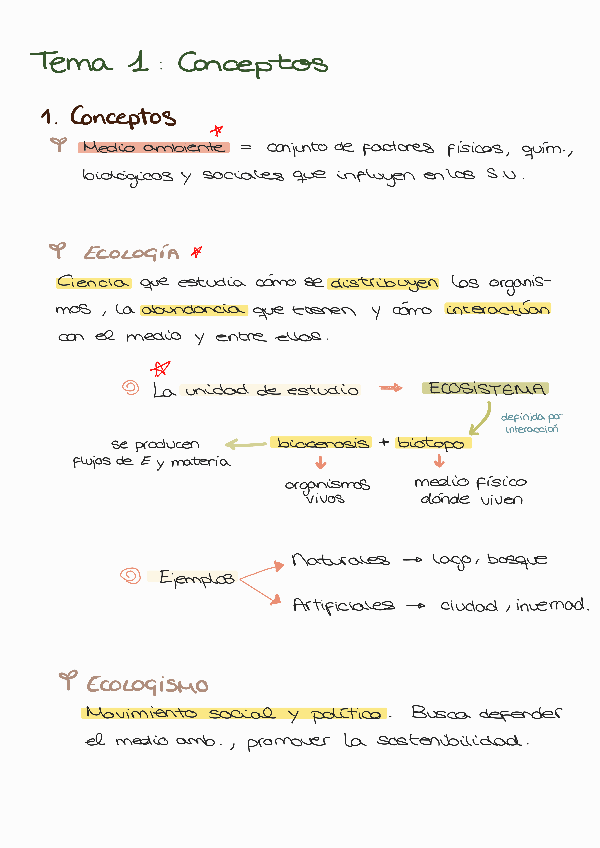 Tema 1: Conceptos
1. Conceptos
Medio ambiente = conjunto de factores físicos, quím.,
biológicos y sociales que influyen en los S.V.
ECOLOGÍA
Ciencia que estudia cómo se distribuyen los organis-
mos, la abundancia que tienen y cómo interactúan
con el medio y entre ellos.
La unidad de estudio → ECOSISTEMA
definida por
interacción
se producen ← biocenosis + biotopo
flujos de E y materia
organismos medio físico
vivos dónde viven
Naturales → lago, bosque
Ejemplos
Artificiales → ciudad, invernad.
ECOLOGISMO
Movimiento social y político. Busca defender
el medio amb., promover la sostenibilidad.